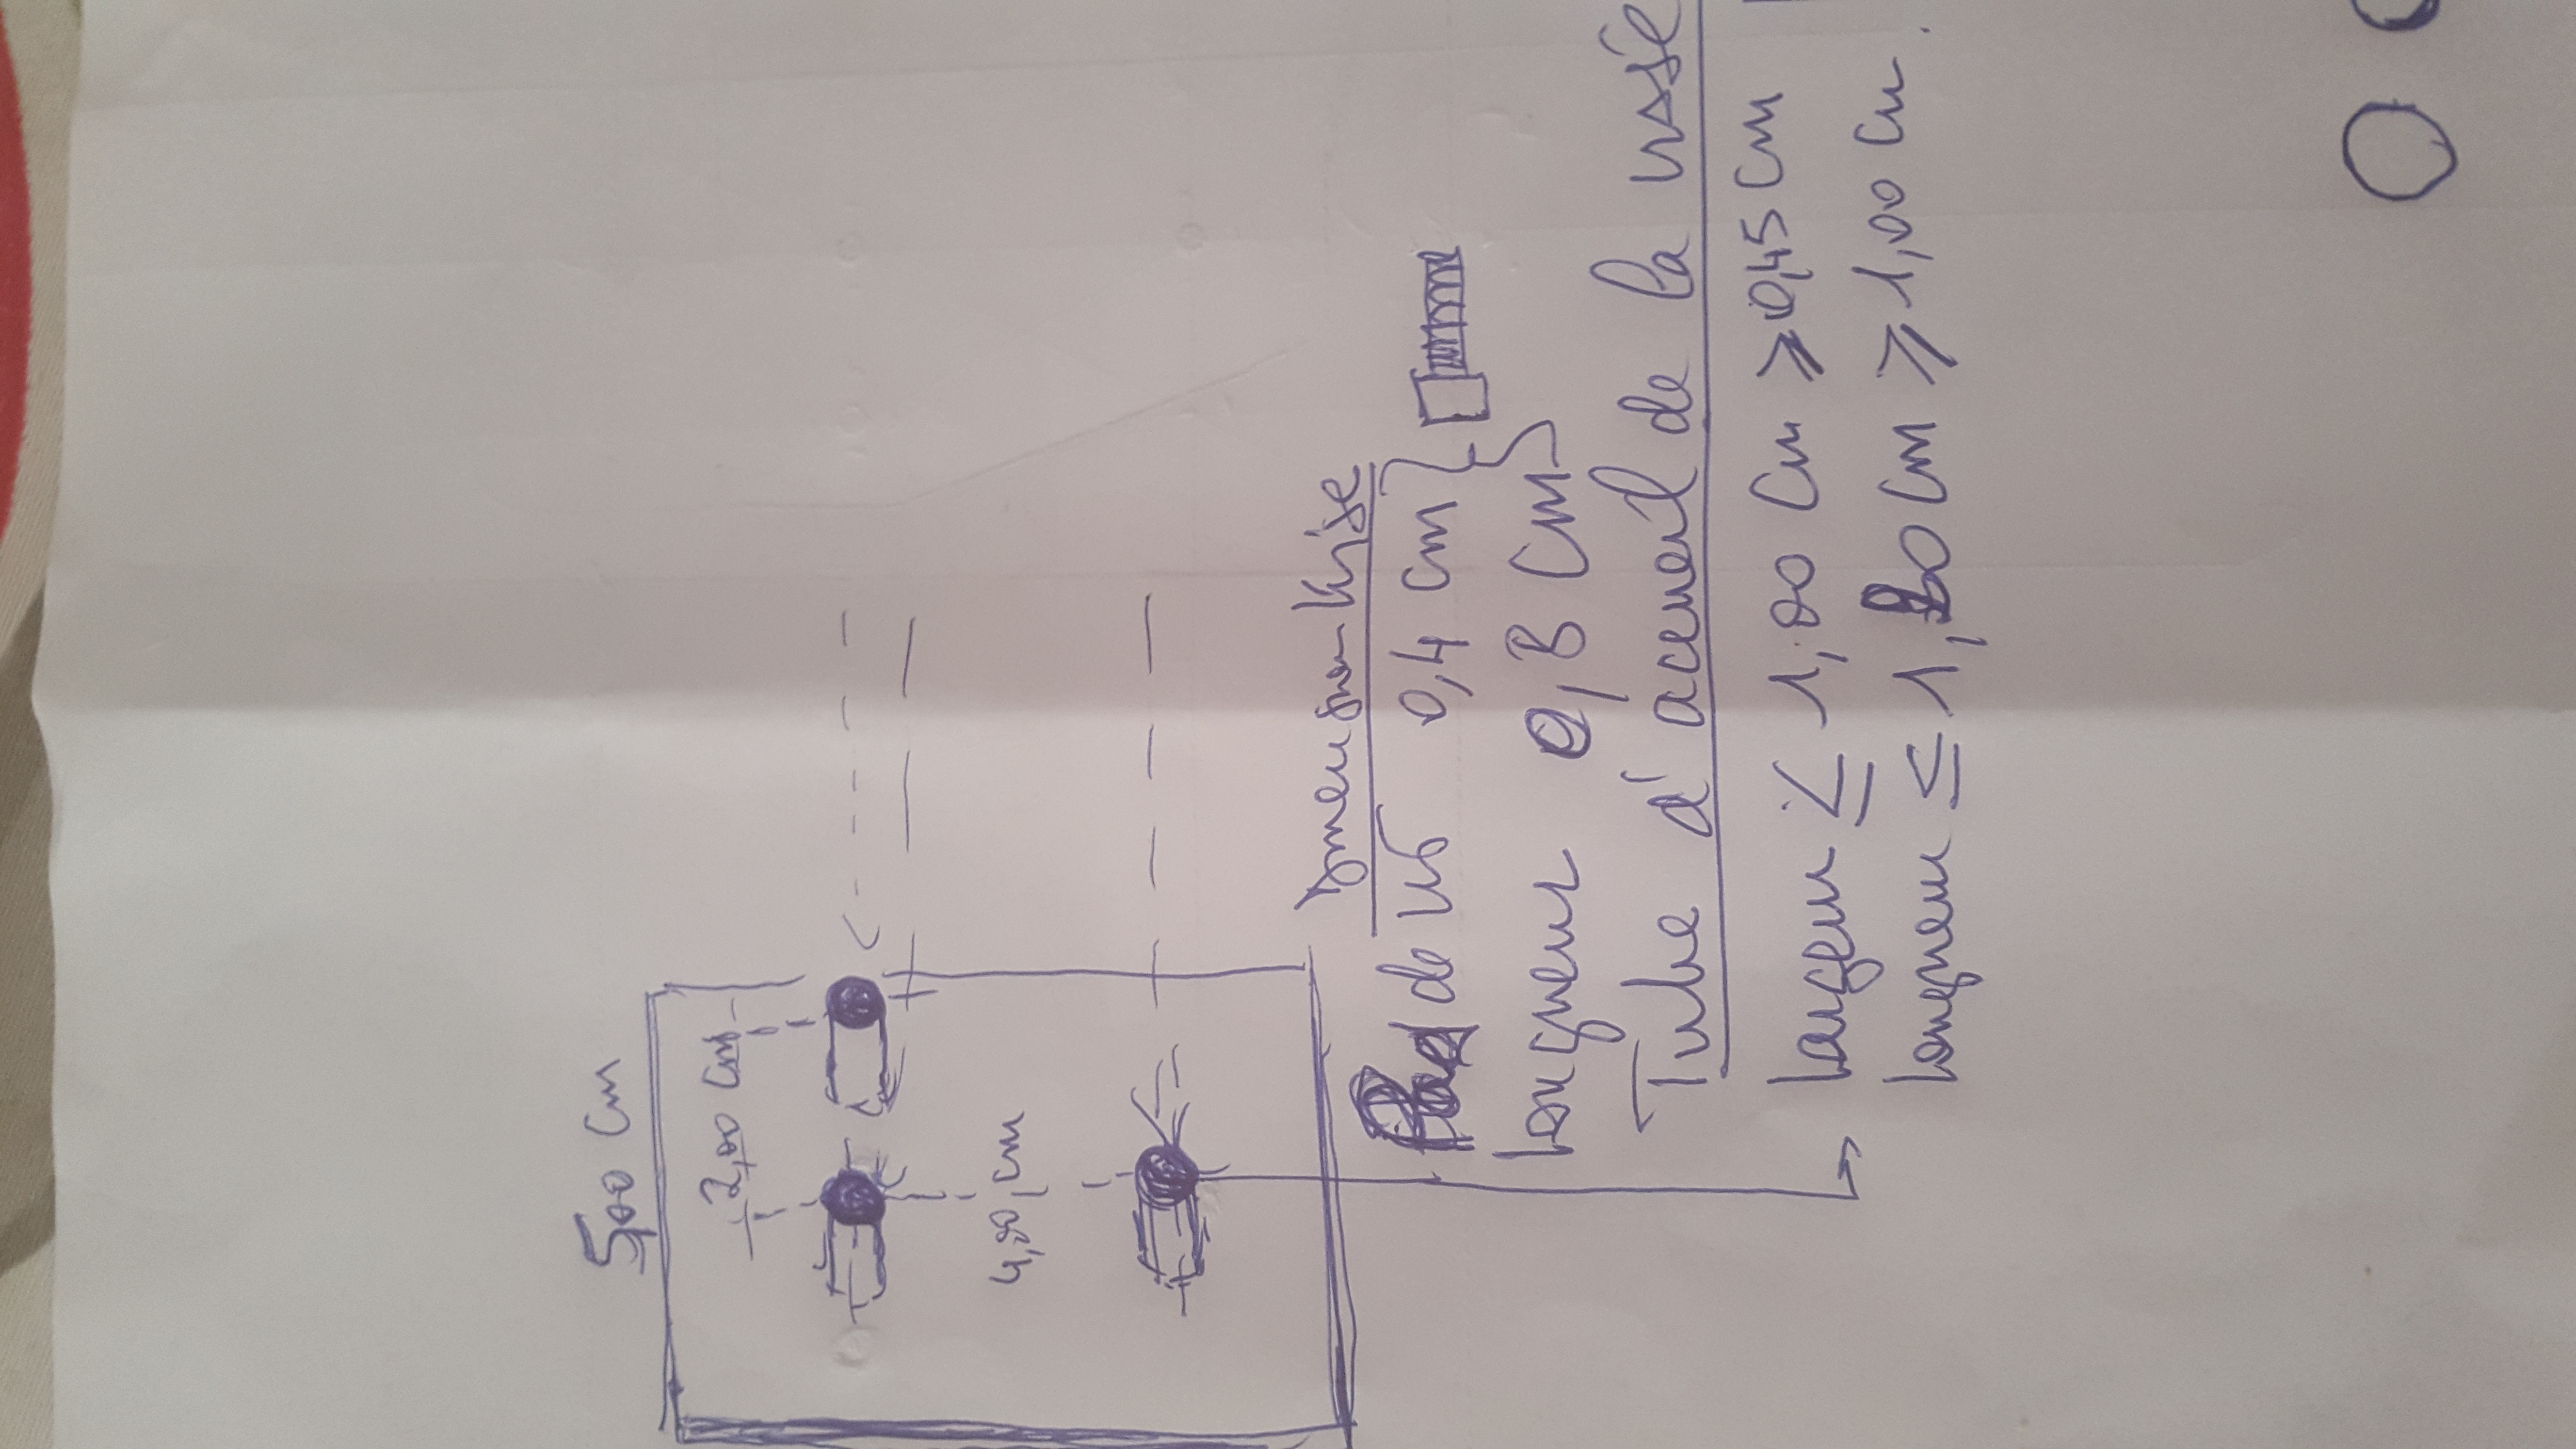 5,00 cm
2,00 cm
4,00 cm
Dimension Vise
de vis 0,4 cm
Longueur 0,B cm
Tube d'acceuil de la visse
largeur ≤ 1,00 cm ≥ 0,45 cm
longueur ≤ 1,20 cm ≥ 1,00 cm.